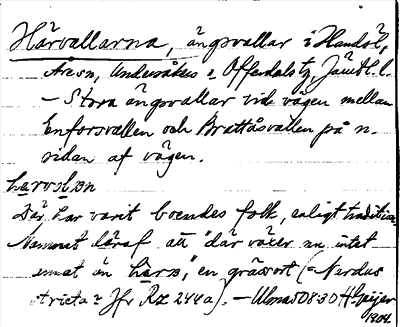 Härvallarna, ängsvallar i Handöl,
Åre sn, Undersåkers o. Offerdals tg, Jämtl. l.
– Stora ängsvallar vid vägen mellan
Enforsvallen och Brattåsvallen på n.
sidan af vägen.
Där har varit boendes folk, enligt tradition.
Namnet däraf att "där växer nu intet
annat än härs", en grässort (= Nardus
stricta? Jfr Rz 244a). – Ulma 508:30 H Geijer
1904.